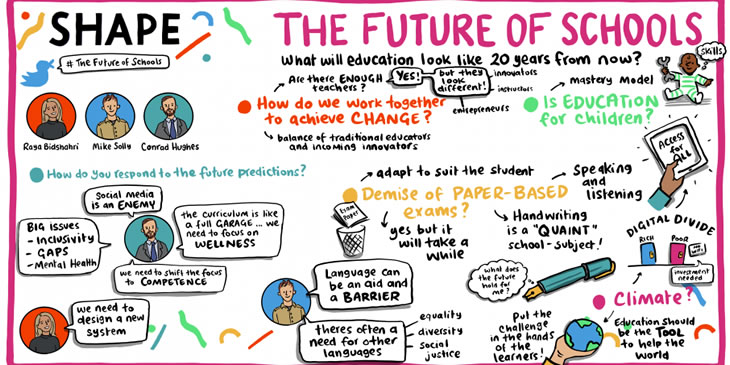 SHAPE
# The Future of Schools
Raya Bidshahri
Mike Solly
Conrad Hughes
THE FUTURE OF SCHOOLS
What will education look like 20 years from now?
Are there ENOUGH
teachers?
YES!
but they
look
different!
innovators
instructors
entrepreneurs
How do we work together
to achieve CHANGE?
balance of traditional educators
and incoming innovators
mastery model
skills
Is EDUCATION
for children?
Access
for
ALL
How do you respond to the future predictions?
Social media
is an ENEMY
BIG issues
- Inclusivity
- GAPS
- Mental Health
the curriculum is like
a full GARAGE ... we
need to focus on
WELLNESS
we need to shift the focus
to COMPETENCE
we need to
design a new
system
adapt to suit the student
Demise of PAPER-BASED
exams?
Exam
Paper
yes but it
will take a
while
Speaking
and
listening
Handwriting
is a "QUAINT"
school-subject!
DIGITAL DIVIDE
RICH
POOR
investment
needed
Language can
be an aid and
a BARRIER
theres often a
need for other
languages
equality
diversity
social
justice
what does
the future
hold for
me?
Put the
challenge
in the hands
of the
learners!
Climate?
Education should
be the TOOL
to help the
world